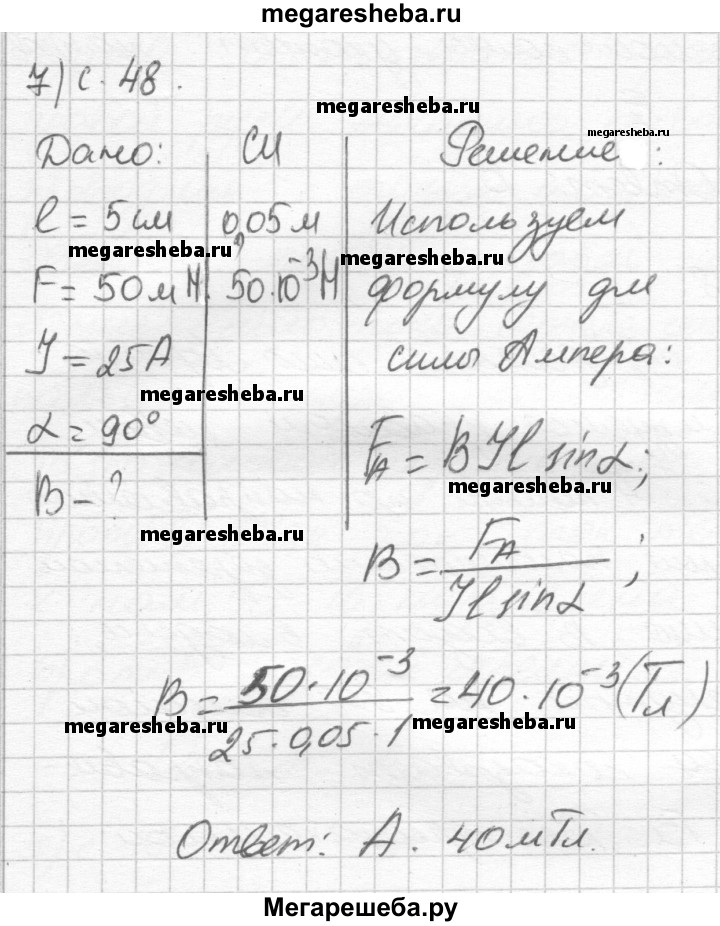 megaresheba.ru
7) с. 48.
megaresheba.ru
Дано:
СИ
Решение:
megaresheba.ru
l = 5 см
0,05 м
Используем
megaresheba.ru
megaresheba.ru
F = 50 мН
50·10⁻³ Н
формулу для
I = 25 А
силы Ампера:
megaresheba.ru
α = 90°
F_A = B I l sin α;
megaresheba.ru
B - ?
megaresheba.ru
B = F_A / (I l sin α);
B = 50·10⁻³ / (25·0,05·1) = 40·10⁻³ (Тл)
megaresheba.ru
megaresheba.ru
Ответ: А. 40 мТл.
megaresheba.ru
Мегарешеба.ру